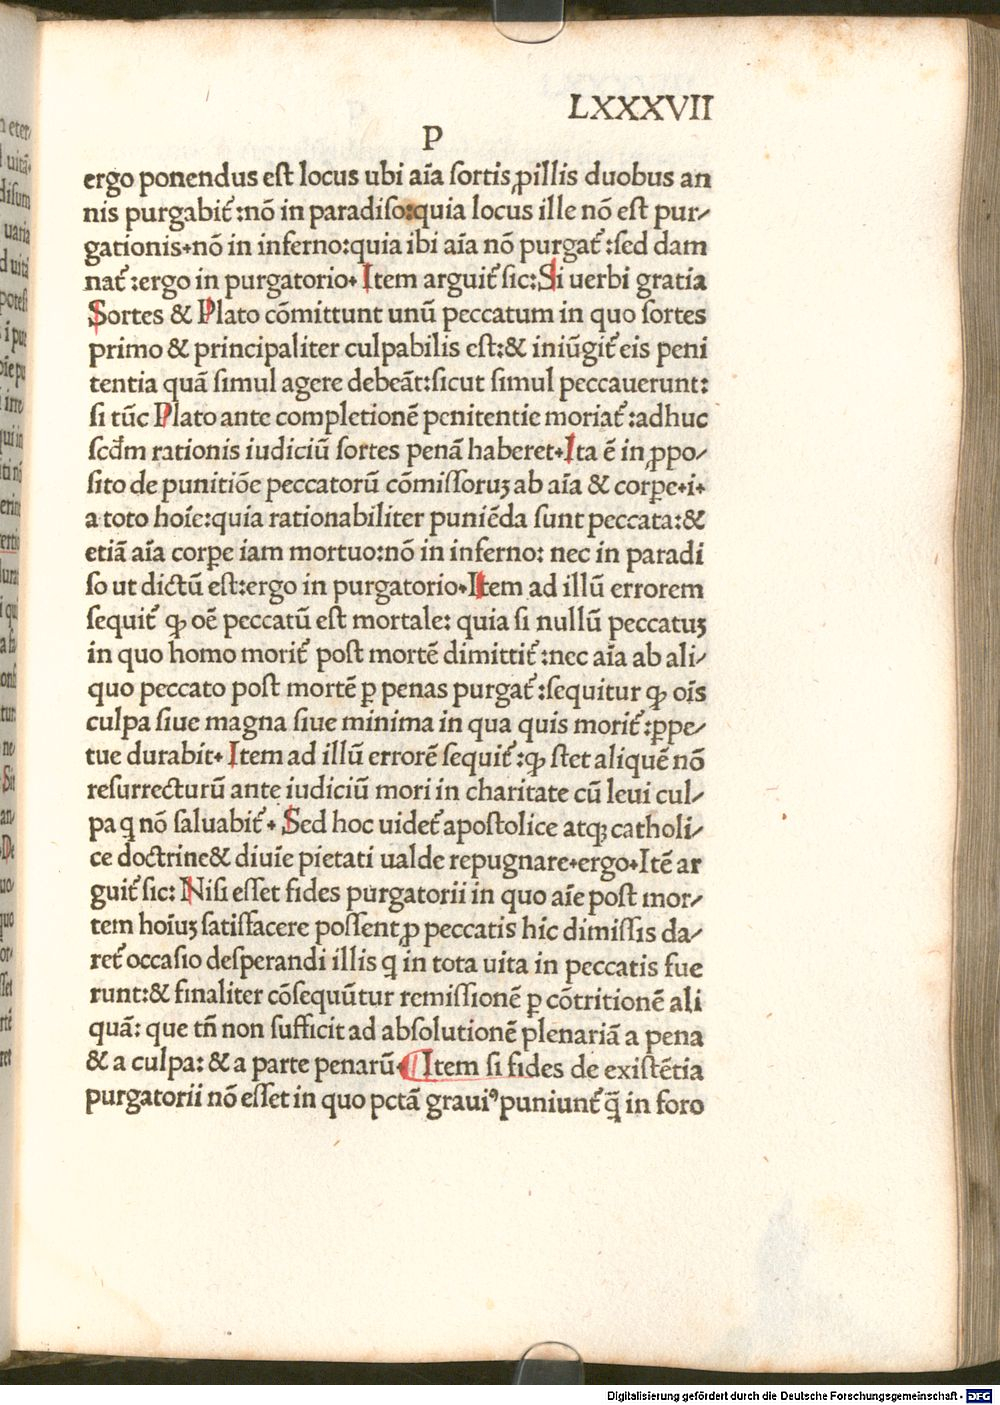 LXXXVII
P
ergo ponendus est locus ubi aĩa sortis ꝓ illis duobus an
nis purgabit᷑ :nõ in paradiso:quia locus ille nõ est pur⸗
gationis.nõ in inferno:quia ibi aĩa nõ purgat᷑ :sed dam
nat᷑ :ergo in purgatorio. Item arguit᷑ sic:Si uerbi gratia
Sortes & Plato cõmittunt unũ peccatum in quo sortes
primo & principaliter culpabilis est:& iniũgit᷑ eis peni
tentia quã simul agere debeãt:sicut simul peccauerunt:
si tũc Plato ante completionẽ penitentie moriat᷑ :adhuc
scd̃m rationis iudiciũ sortes penã haberet.Ita ẽ in ꝓpo⸗
sito de punitiõe peccatorũ cõmissoruꝫ ab aĩa & corꝑe.i.
a toto hoĩe:quia rationabiliter puniẽda sunt peccata:&
etiã aĩa corꝑe iam mortuo:nõ in inferno: nec in paradi
so ut dictũ est:ergo in purgatorio.Item ad illũ errorem
sequit᷑ ꝙ oẽ peccatũ est mortale: quia si nullũ peccatuꝫ
in quo homo morit᷑ post mortẽ dimittit᷑ :nec aĩa ab ali⸗
quo peccato post mortẽ ꝑ penas purgat᷑ :sequitur ꝙ oĩs
culpa siue magna siue minima in qua quis morit᷑ :ꝑpe⸗
tue durabit. Item ad illũ errorẽ sequit᷑ :ꝙ stet aliquẽ nõ
resurrecturũ ante iudiciũ mori in charitate cũ leui cul⸗
pa q nõ saluabit᷑ . Sed hoc uidet᷑ apostolice atqꝫ catholi⸗
ce doctrine& diuĩe pietati ualde repugnare.ergo.Itẽ ar
guit᷑ sic: Nisi esset fides purgatorii in quo aĩe post mor⸗
tem hoĩuꝫ satisfacere possent ꝓ peccatis hic dimissis da⸗
ret᷑ occasio desperandi illis q in tota uita in peccatis fue
runt:& finaliter cõsequũtur remissionẽ ꝑ cõtritionẽ ali
quã: que tñ non sufficit ad absolutionẽ plenariã a pena
& a culpa: & a parte penarũ. Item si fides de existẽtia
purgatorii nõ esset in quo pctã grauiꝰ puniunt᷑ q̃ in foro
Digitalisierung gefördert durch die Deutsche Forschungsgemeinschaft - DFG